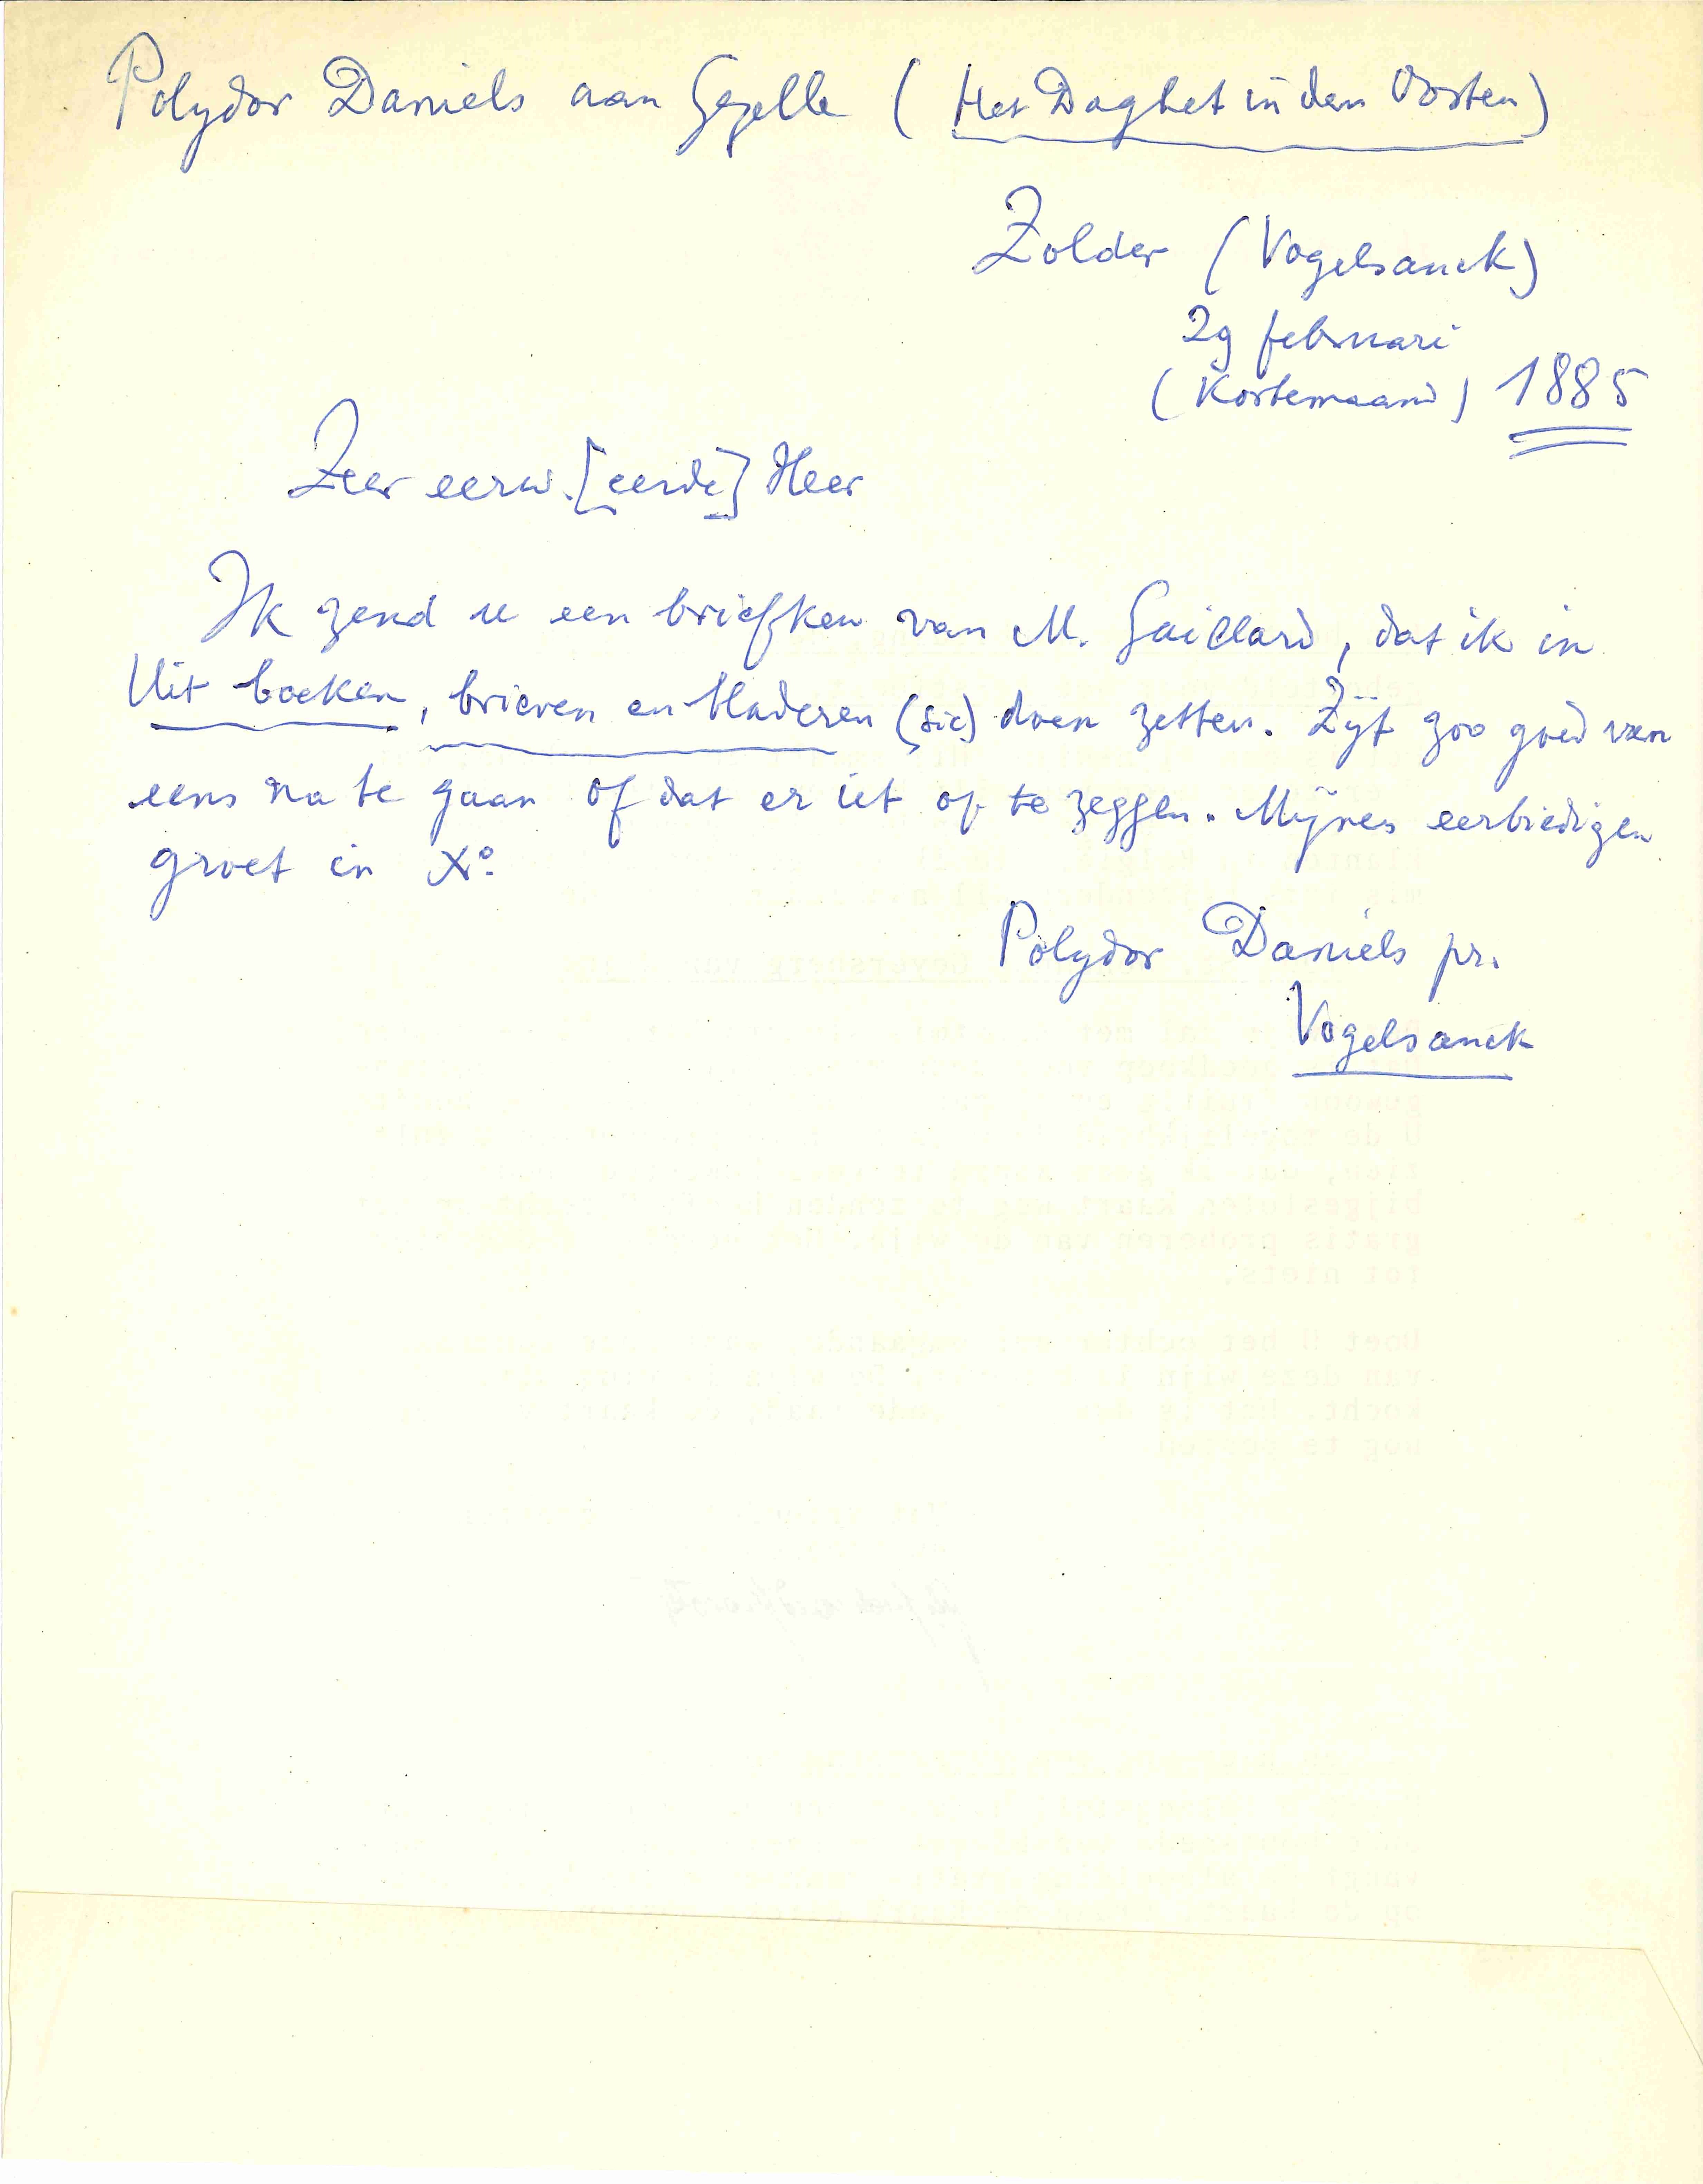 Polydor Daniels aan Gezelle (Het Daghet in den Oosten)
Zolder (Vogelsanck)
29 februari
(Kortemaand) 1885
Zeer eerw.[eerde] Heer
Ik zend u een briefken van M. Gaillard, dat ik in
Uit boeken, brieven en bladeren (sic) doen zetten. Zijt zoo goed van
eens na te gaan of dat er iet op te zeggen. Mijnen eerbiedigen
groet in Xº.
Polydor Daniëls pr.
Vogelsanck